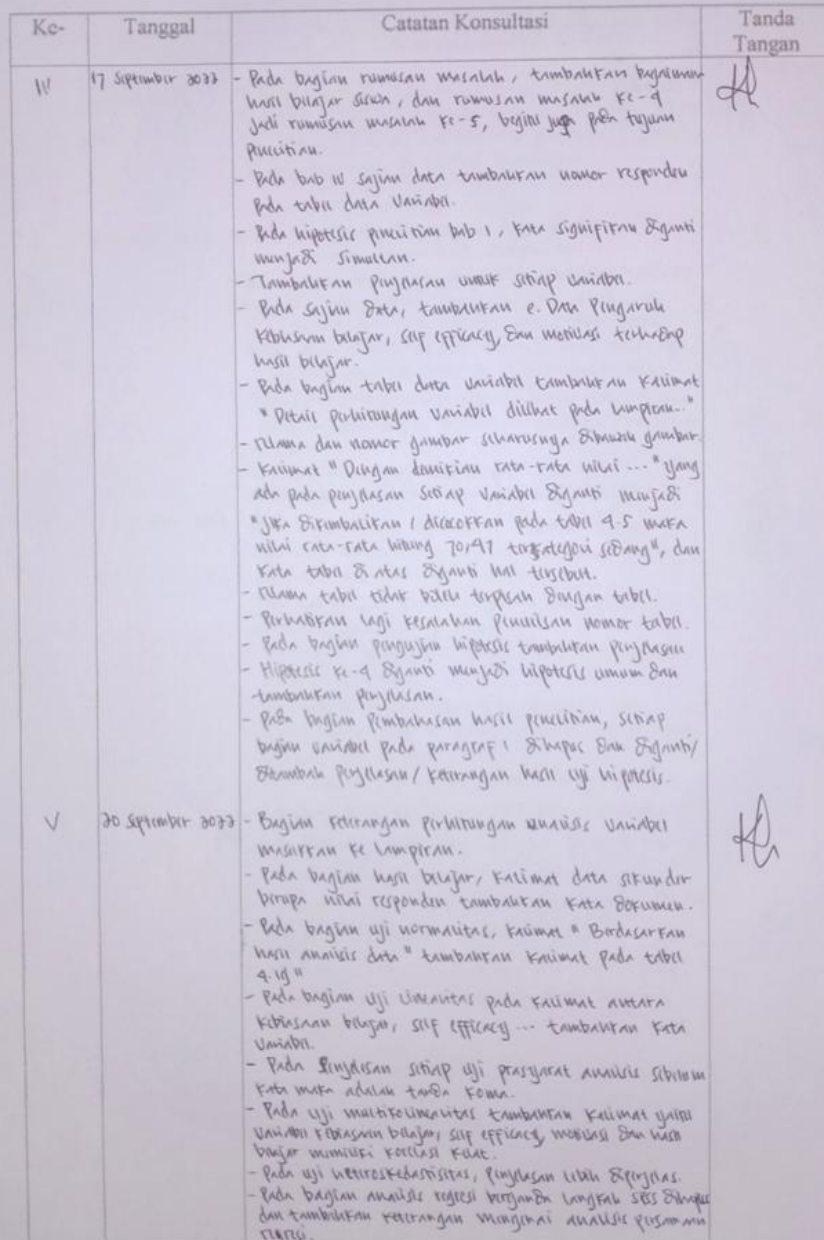 Ke- Tanggal Catatan Konsultasi Tanda Tangan
IV 17 September 2022 - Pada bagian rumusan masalah, tambahkan bagaimana
hasil belajar siswa, dan rumusan masalah ke-4
Jadi rumusan masalah ke-5, begitu juga pada tujuan
penelitian.
- Pada bab IV sajian data tambahkan nomor responden
pada tabel data variabel.
- Pada hipotesis penelitian bab 1, kata signifikan diganti
menjadi simultan.
- Tambahkan penjelasan untuk setiap variabel.
- Pada sajian data, tambahkan e. Dan Pengaruh
kebiasaan belajar, self efficacy, dan motivasi terhadap
hasil belajar.
- Pada bagian tabel data variabel tambahkan kalimat
"Detail perhitungan variabel dilihat pada lampiran..."
- Nama dan nomor gambar seharusnya dibawah gambar.
- Kalimat "Dengan demikian rata-rata nilai ..." yang
ada pada penjelasan setiap variabel diganti menjadi
"Jika dikembalikan / dicocokkan pada tabel 4.5 maka
nilai rata-rata hitung 70,47 terkategori sedang", dan
kata tabel di atas diganti hal tersebut.
- Nama tabel tidak boleh terpisah dengan tabel.
- Perhatikan lagi kesalahan penulisan nomor tabel.
- Pada bagian pengujian hipotesis tambahkan penjelasan
- Hipotesis ke-4 diganti menjadi hipotesis umum dan
tambahkan penjelasan.
- Pada bagian pembahasan hasil penelitian, setiap
bagian variabel pada paragraf 1 dihapus dan diganti/
ditambah penjelasan / keterangan hasil uji hipotesis.
V 20 September 2022 - Bagian keterangan perhitungan analisis variabel
masukkan ke lampiran.
- Pada bagian hasil belajar, kalimat data sekunder
berupa nilai responden tambahkan kata dokumen.
- Pada bagian uji normalitas, kalimat "Berdasarkan
hasil analisis data" tambahkan kalimat pada tabel
4.19"
- Pada bagian uji linearitas pada kalimat antara
kebiasaan belajar, self efficacy ... tambahkan kata
variabel.
- Pada penjelasan setiap uji prasyarat analisis sebelum
kata maka adalah tanda koma.
- Pada uji multikolinearitas tambahkan kalimat yaitu
variabel kebiasaan belajar, self efficacy, motivasi dan hasil
belajar memiliki korelasi kuat.
- Pada uji heteroskedastisitas, penjelasan lebih diperjelas.
- Pada bagian analisis regresi berganda langkah spss dihapus
dan tambahkan keterangan mengenai analisis persamaan
regresi.